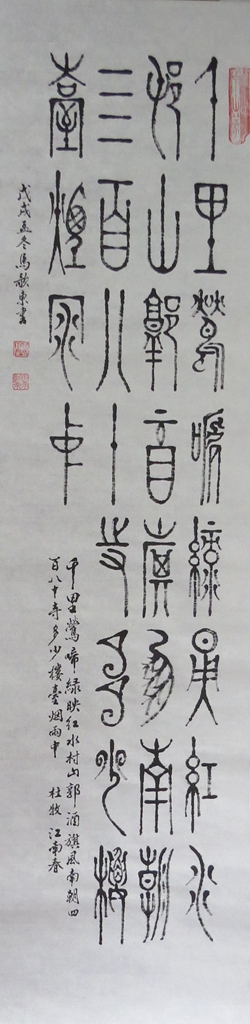 千里鶯啼綠映紅水
邨山郭酒旗風南朝
亖百八十寺多少樓
臺煙雨中
千里鶯啼綠映紅水村山郭酒旗風南朝四
百八十寺多少樓臺烟雨中 杜牧 江南春
戊戌孟冬馬歌東書